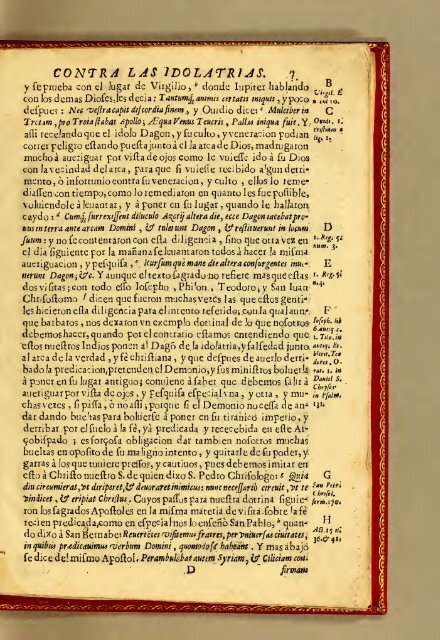 CONTRA LAS IDOLATRIAS. 7.
y se prueba con el lugar de Virgilio, donde Iupiter hablando
con los demas Dioses, les decia: Tantumq; animis certatis iniquis, y poco
despues: Nec vestra capit discordia finem, y Ouidio dice: Mulciber in
Troiam, pro Troia stabat Apollo, Æqua Venus Teucris, Pallas iniqua fuit. Y
assi recelando que el idolo Dagon, y su culto, y veneracion podian
correr peligro estando puesta junto à èl la arca de Dios, madrugaron
mucho à aueriguar por vista de ojos como le vuiesse ido à su Dios
con la vecindad del arca, para que si vuiesse recibido algun detri-
mento, ò infortunio contra su veneracion, y culto, ellos lo reme-
diassen con tiempo, como lo remediaron en quanto les fue possible,
voluiendole à leuantar, y à poner en su lugar, quando le hallaron
caydo: Cumq; surrexissent diluculo Azotij altera die, ecce Dagon iacebat pro-
nus in terra ante arcam Domini, & tulerunt Dagon, & restituerunt in locum
suum: y no se contentaron con esta diligencia, sino que otra vez en
el dia siguiente por la mañana se leuantaron todos à hacer la misma
aueriguacion, y pesquisa, Rursumque mane die altera consurgentes inue-
nerunt Dagon; &c. Y aunque el texto sagrado no refiere mas que estas
dos visitas; con todo esso Iosepho, Philon, Teodoro, y San Iuan
Chrisostomo dicen que fueron muchas veces las que estos genti-
les hicieron esta diligencia para el intento referido; con la qual aun-
que barbaros, nos dexaron vn exemplo dotrinal de lo que nosotros
debemos hacer, quando por el contrario estamos entendiendo que
estos nuestros Indios ponen al Dagõ de la idolatria, y falsedad junto
al arca de la verdad, y fè christiana, y que despues de auerlo derri-
bado la predicacion, pretenden el Demonio, y sus ministros boluerla
à poner en su lugar antiguo; conuiene à saber que debemos salir à
aueriguar por vista de ojos, y pesquisa especial vna, y otra, y mu-
chas vetes, si passa, ò no assi, porque si el Demonio no cessa de an-
dar dando bueltas para boluerse à poner en su tiranico imperio, y
derribar por el suelo à la fè, yà predicada y recebida en este Ar-
çobispado; es forçosa obligacion dar tambien nosotros muchas
bueltas en oposito de su maligno intento, y quitarle de su poder, y
garras à los que tuuiere pressos, y cautiuos, pues debemos imitar en
esto à Christo nuestro S. de quien dizo S. Pedro Chrisologo: Quia
diu circumierat, vt diriperet, & deuoraret inimicus: nunc necessariò circuit, vt te
vindicet, & eripiat Christus. Cuyos passos para nuestra dotrina siguie-
ron los sagrados Apostoles en la misma materia de visita sobre la fè
recien predicada, como en especial nos lo enseñò San Pablo, quan-
do dixo à San Bernabe: Reuertētes visitemus fratres, per vniuersas ciuitates,
in quibus prædicauimus verbum Domini, quomodo se habeant. Y mas abajo
se dice del mismo Apostol. Perambulabat autem Syriam, & Ciliciam con-
D firmans
B
Virgil. Æ
C
D
1. Reg. 5.
num. 3.
E
1. Reg. 5.
n. 4.
F
Ioseph. lib
6. antiq. c.
1. in
Daniel 5.
Chrysos
in Psalm.
131.
G
San Petr.
Chrisol.
serm. 170.
H
Act. 15 nu.
36. & 41.